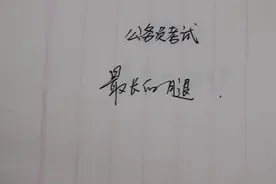 公务员考试
最长的腿.